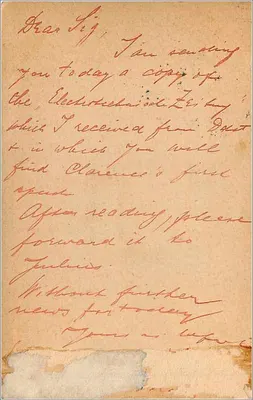 Dear Sig,
I am sending
you today a copy of
the
which I received from
& in which you will
find Clarence's first
After reading, please
forward it to
Julius.
Without further
news for today
Yours as